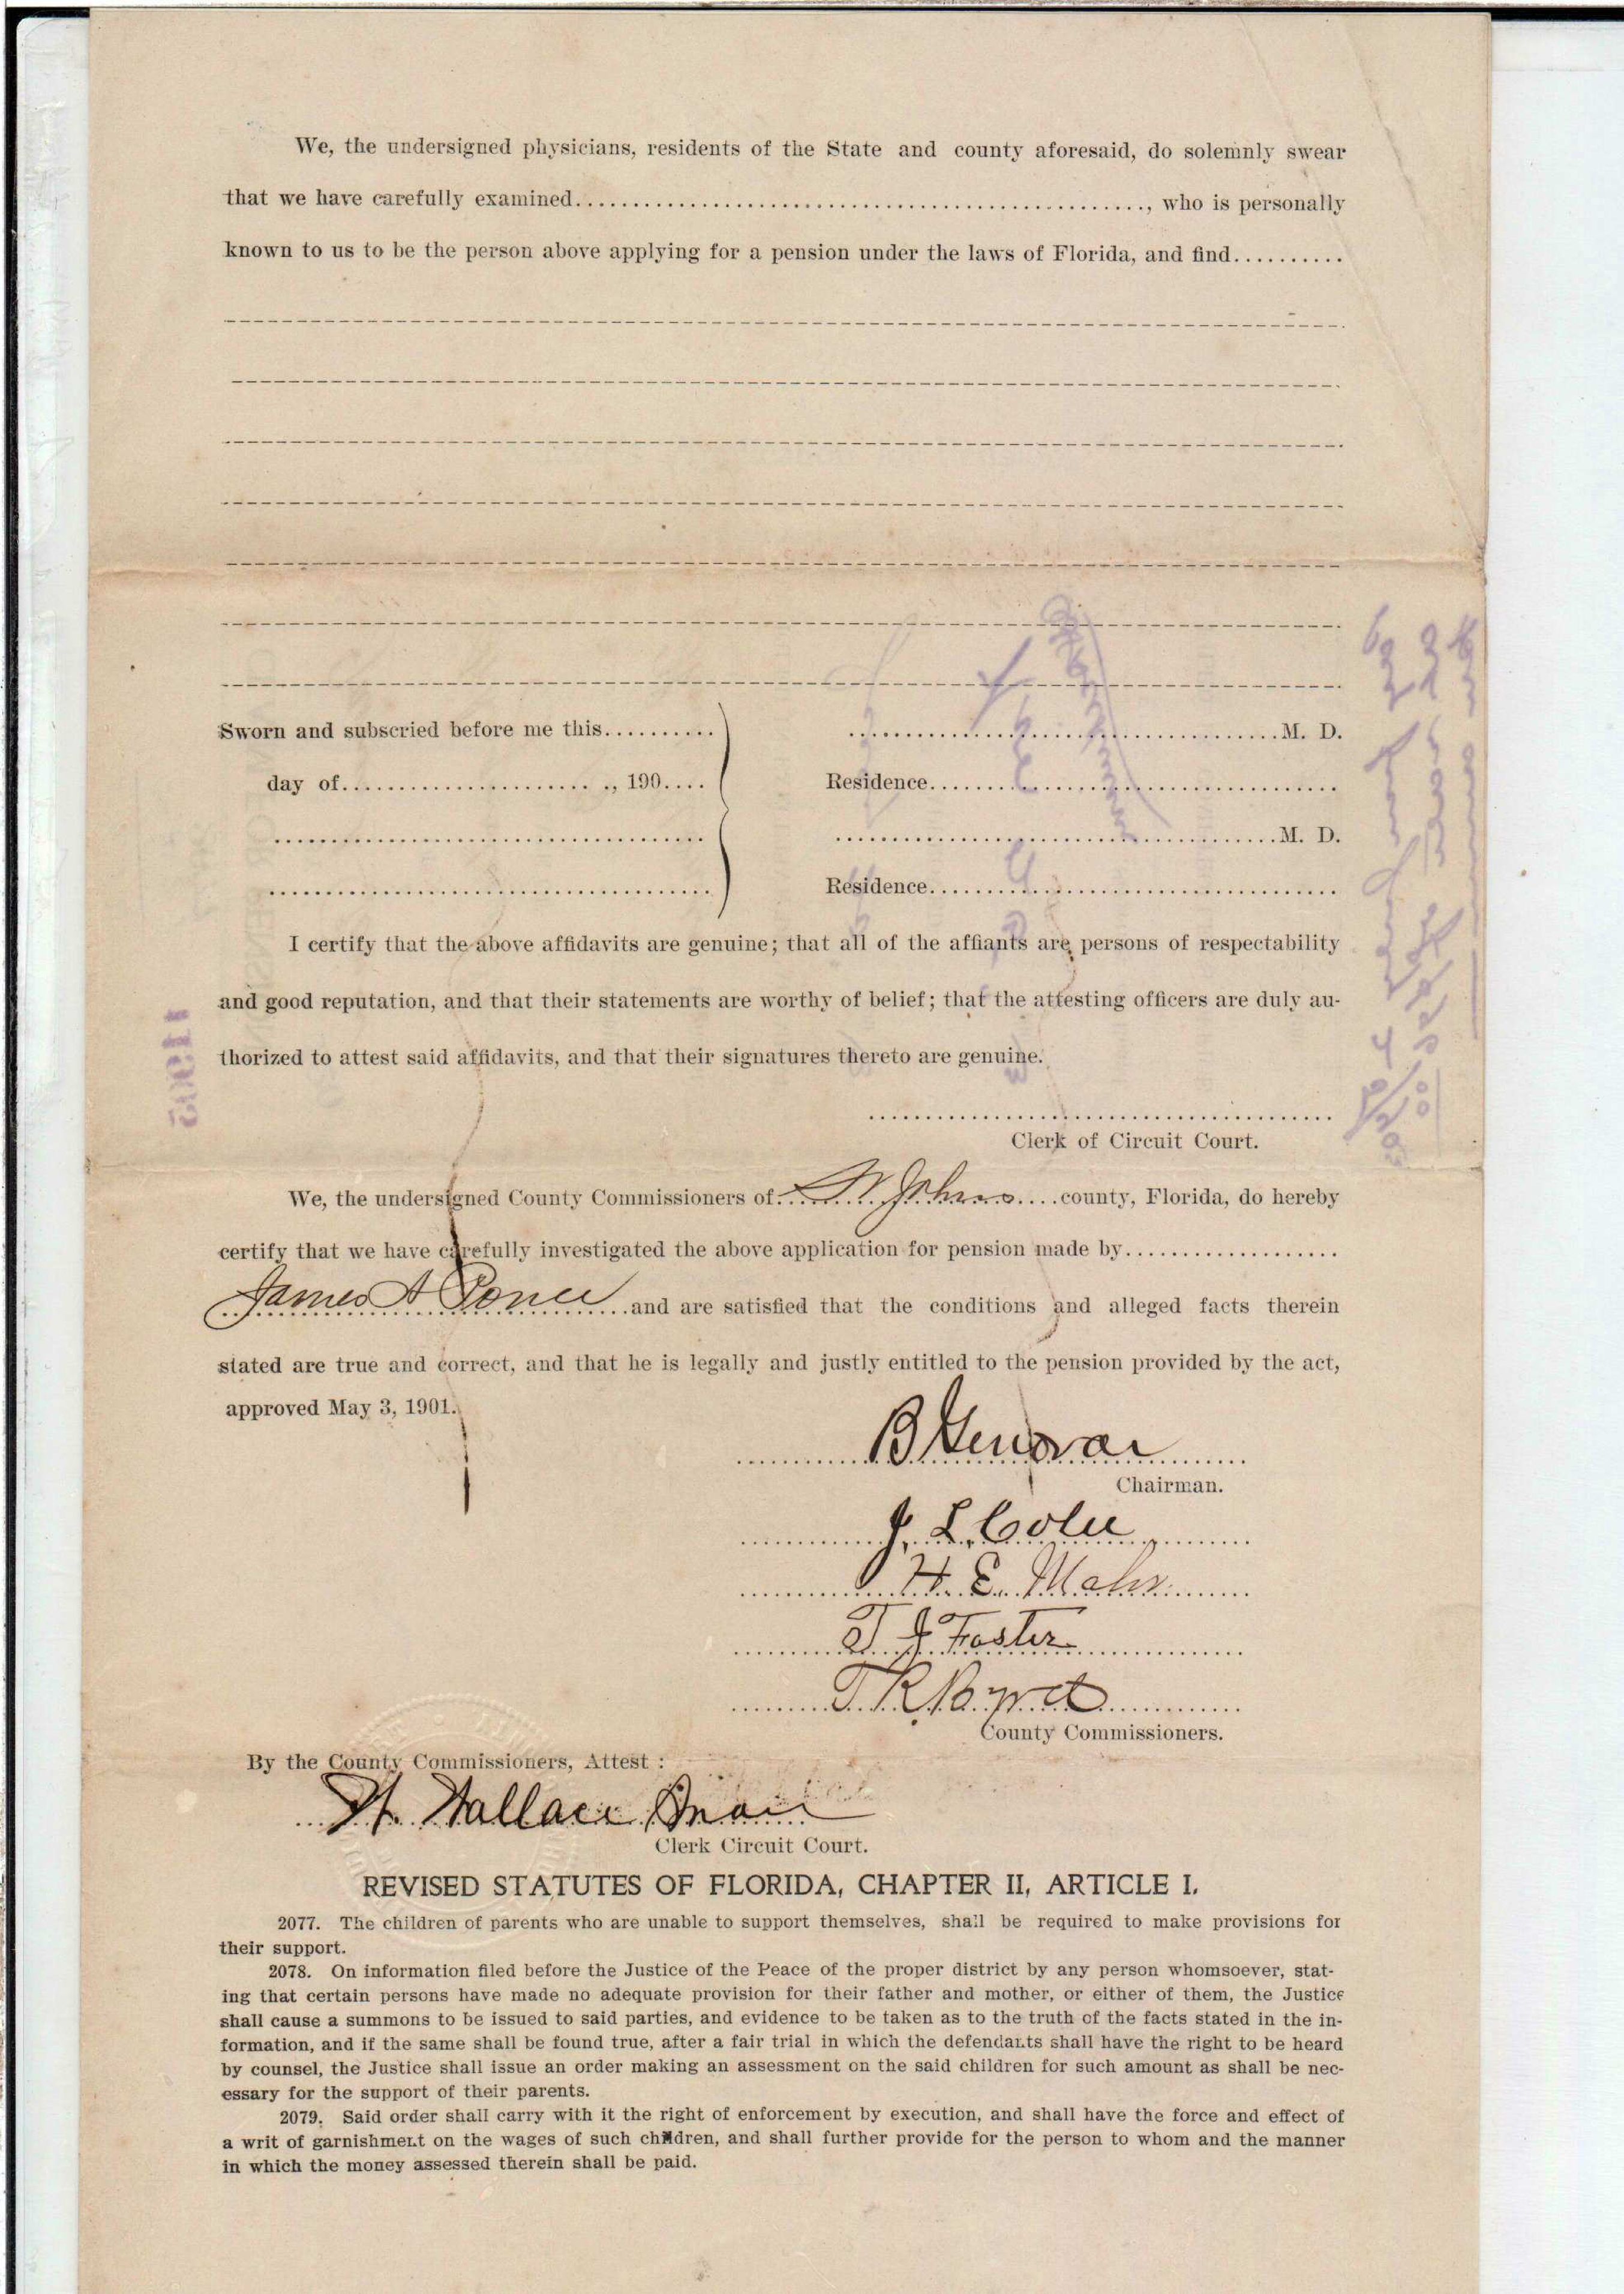 We, the undersigned physicians, residents of the State and county aforesaid, do solemnly swear
that we have carefully examined......................................................, who is personally
known to us to be the person above applying for a pension under the laws of Florida, and find..........
Sworn and subscried before me this..........
day of........................, 190....
........................................M. D.
Residence........................................
........................................M. D.
Residence........................................
I certify that the above affidavits are genuine; that all of the affiants are persons of respectability
and good reputation, and that their statements are worthy of belief; that the attesting officers are duly au-
thorized to attest said affidavits, and that their signatures thereto are genuine.
Clerk of Circuit Court.
We, the undersigned County Commissioners of St Johns county, Florida, do hereby
certify that we have carefully investigated the above application for pension made by...................
James A Ponce and are satisfied that the conditions and alleged facts therein
stated are true and correct, and that he is legally and justly entitled to the pension provided by the act,
approved May 3, 1901.
B Genovar
Chairman.
J. L. Colee
H. E. Mahr
T J Foster
T. R. Byrd
County Commissioners.
By the County Commissioners, Attest :
Wallace
Clerk Circuit Court.
REVISED STATUTES OF FLORIDA, CHAPTER II, ARTICLE I.
2077. The children of parents who are unable to support themselves, shall be required to make provisions for
their support.
2078. On information filed before the Justice of the Peace of the proper district by any person whomsoever, stat-
ing that certain persons have made no adequate provision for their father and mother, or either of them, the Justice
shall cause a summons to be issued to said parties, and evidence to be taken as to the truth of the facts stated in the in-
formation, and if the same shall be found true, after a fair trial in which the defendants shall have the right to be heard
by counsel, the Justice shall issue an order making an assessment on the said children for such amount as shall be nec-
essary for the support of their parents.
2079. Said order shall carry with it the right of enforcement by execution, and shall have the force and effect of
a writ of garnishment on the wages of such children, and shall further provide for the person to whom and the manner
in which the money assessed therein shall be paid.